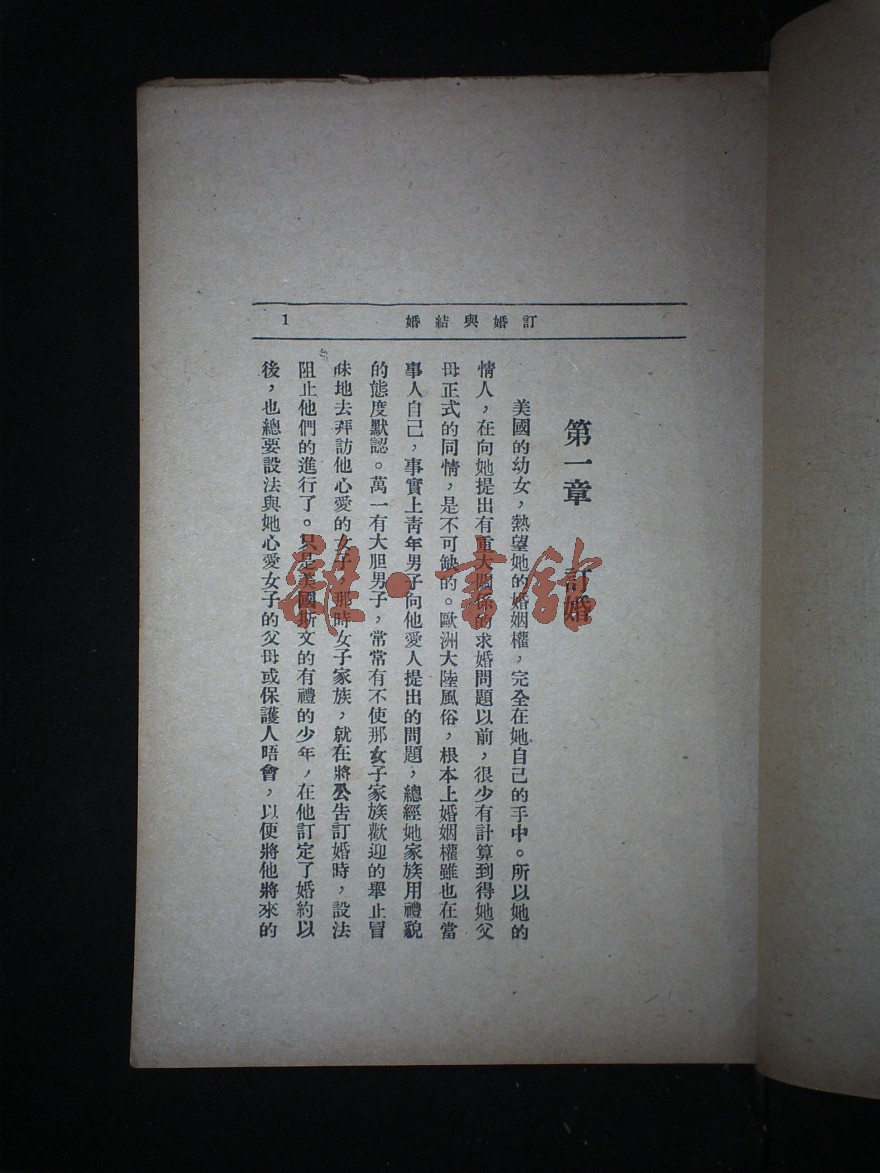 訂婚與結婚 1
第一章 訂婚
美國的幼女，熱望她的婚姻權，完全在她自己的手中。所以她的
情人，在向她提出有重大關係的求婚問題以前，很少有計算到得她父
母正式的同情，是不可缺的。歐洲大陸風俗，根本上婚姻權雖也在當
事人自己，事實上青年男子向他愛人提出的問題，總經她家族用禮貌
的態度默認。萬一有大胆男子，常常有不使那女子家族歡迎的舉止冒
昧地去拜訪他心愛的女子，那時女子家族，就在將公告訂婚時，設法
阻止他們的進行了。只是美國斯文的有禮的少年，在他訂定了婚約以
後，也總要設法與她心愛女子的父母或保護人晤會，以便將他將來的
雜·書館